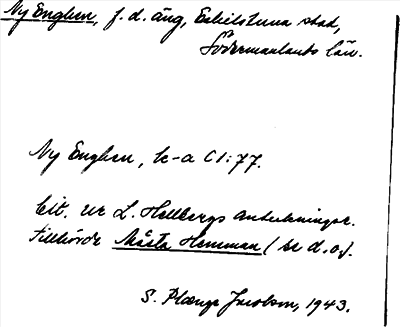 Ny Enghen, f.d. äng, Eskilstuna stad,
Södermanlands län.
Ny Enghen, k-a C1:77.
Cit. ur L. Hellbergs anteckningar.
Tillhörde Måsta Hemman (se d.o.).
S. Plænge Jacobson, 1943.